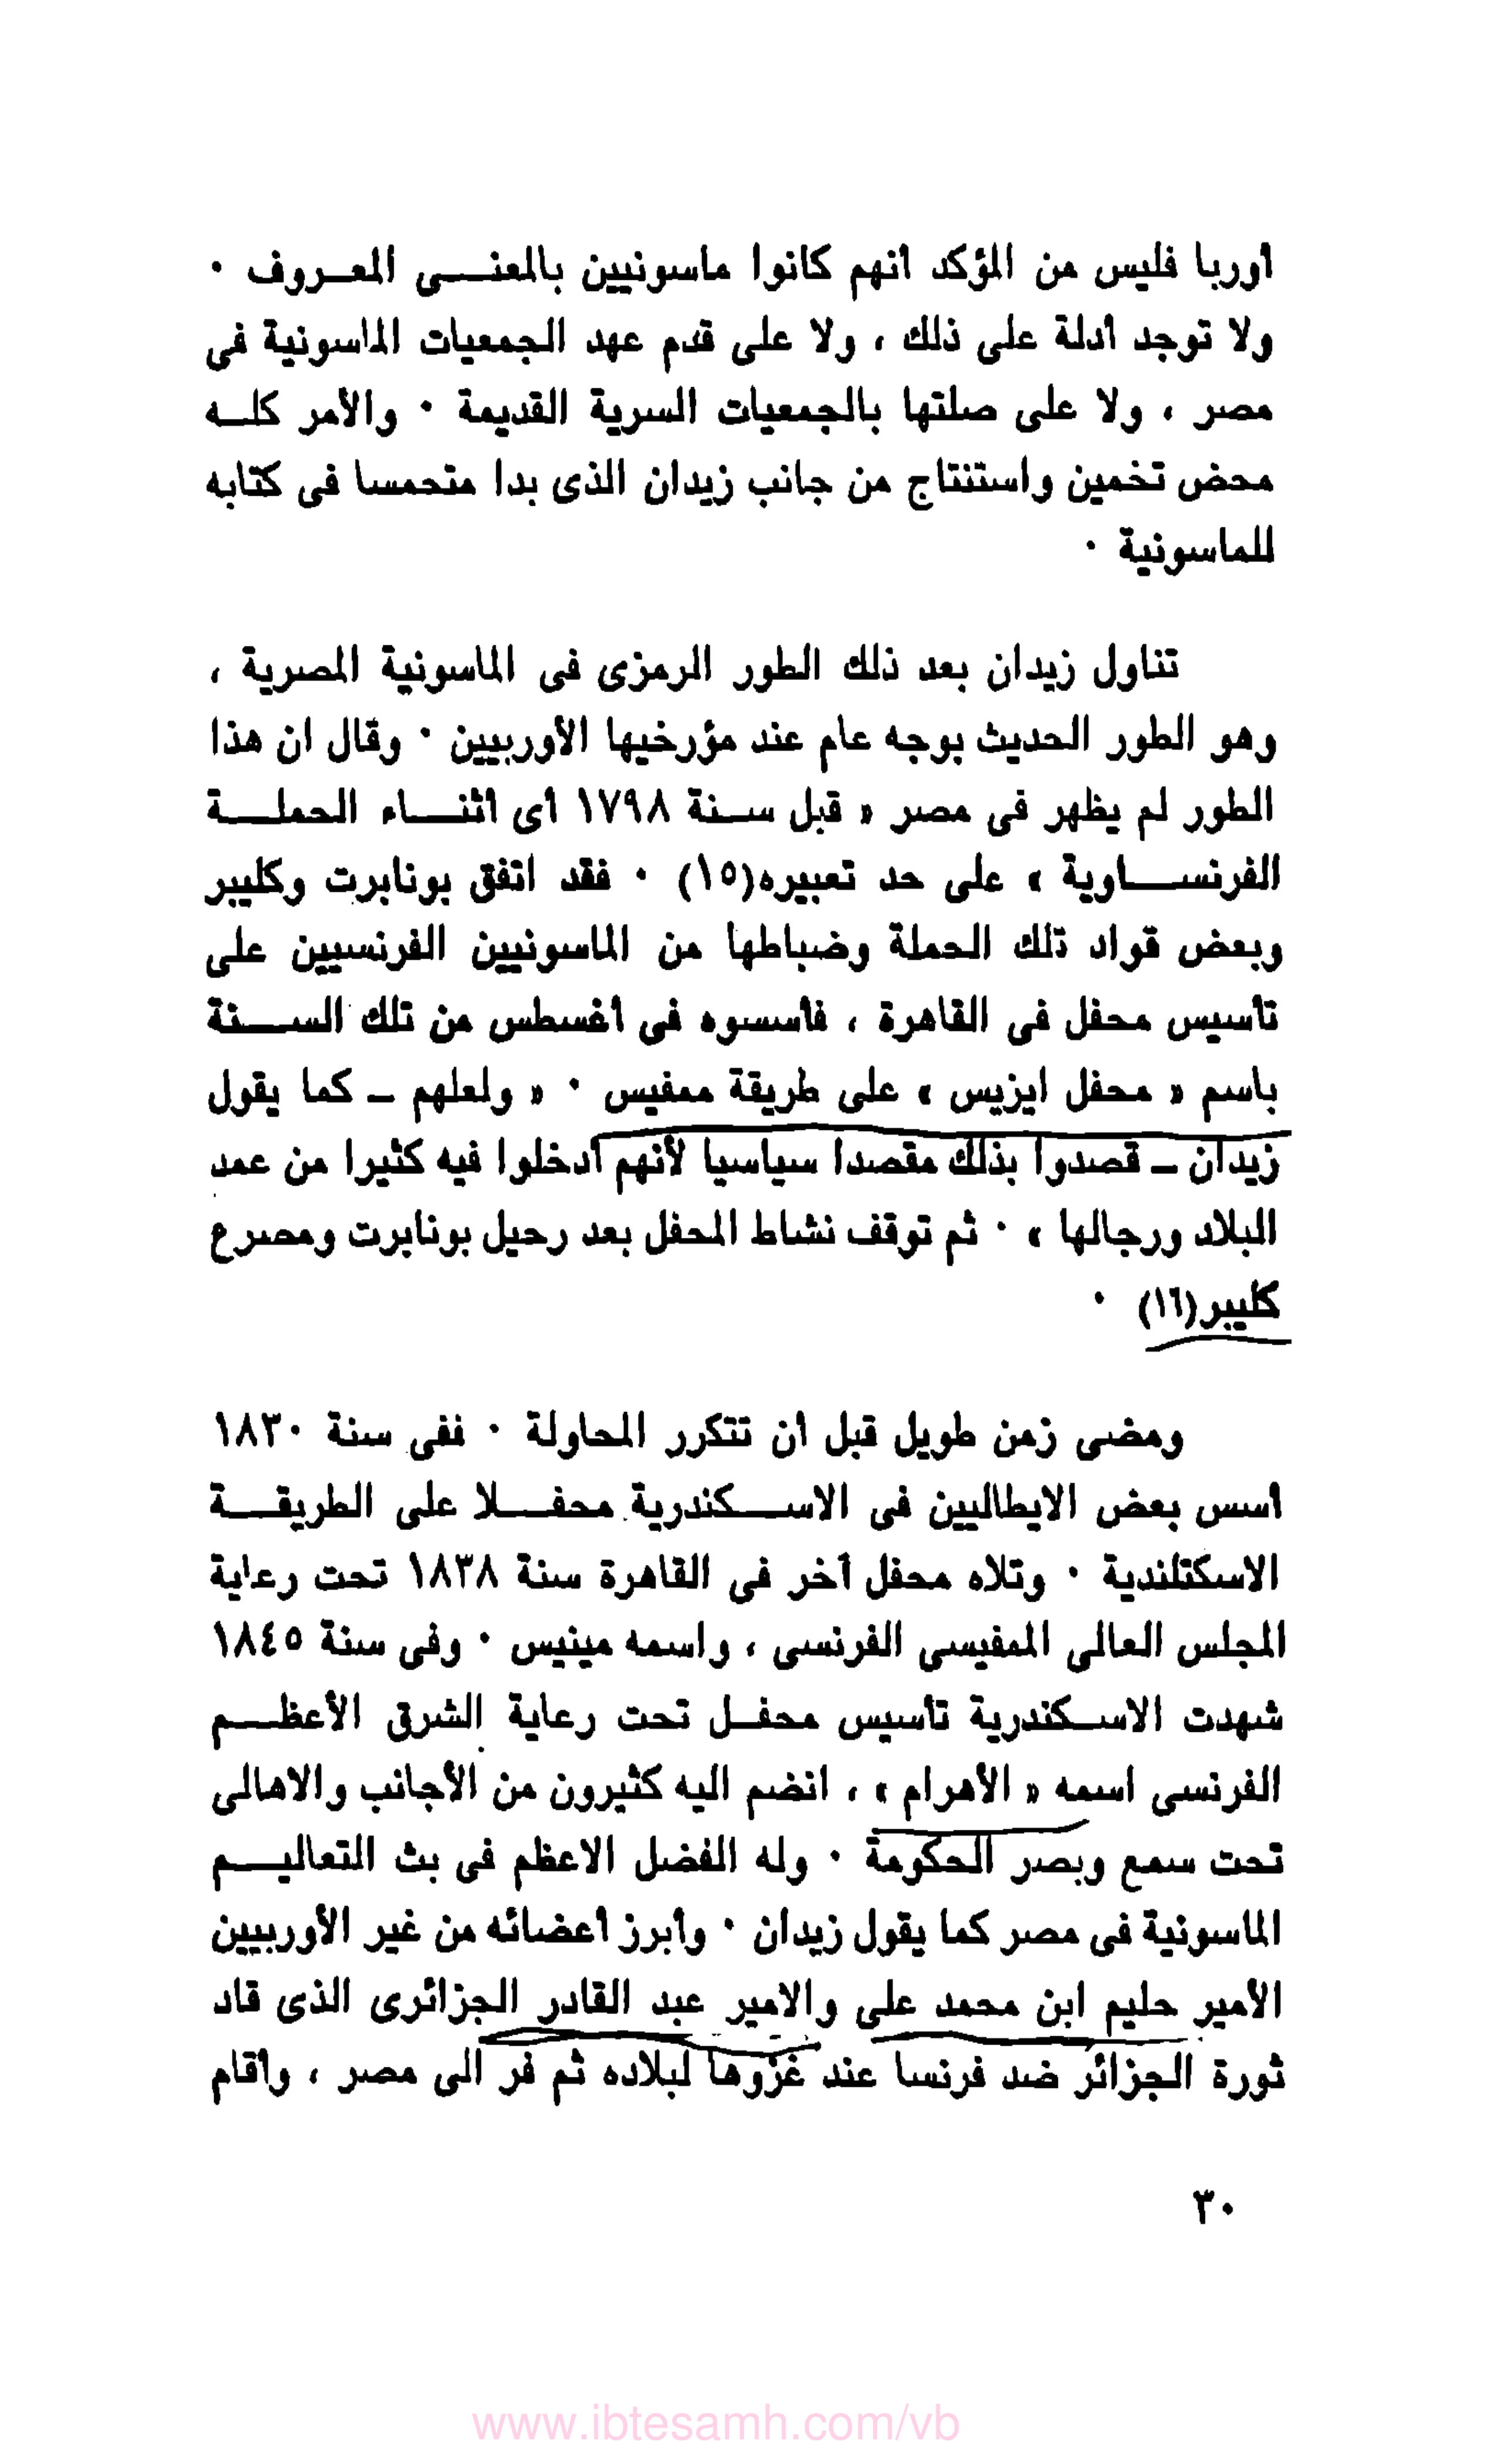 أوربا فليس من المؤكد أنهم كانوا ماسونيين بالمعنـــى المعــروف ٠
ولا توجد أدلة على ذلك ، ولا على قدم عهد الجمعيات الماسونية فى
مصر ، ولا على صلتها بالجمعيات السرية القديمة ٠ والأمر كلــه
محض تخمين واستنتاج من جانب زيدان الذى بدا متحمسا فى كتابه
للماسونية ٠
تناول زيدان بعد ذلك الطور الرمزى فى الماسونية المصرية ،
وهو الطور الحديث بوجه عام عند مؤرخيها الأوربيين ٠ وقال ان هذا
الطور لم يظهر فى مصر « قبل ســنة ١٧٩٨ أى أثنـــاء الحملـــة
الفرنســـاوية » على حد تعبيره(١٥) ٠ فقد اتفق بونابرت وكليبر
وبعض قواد تلك الحملة وضباطها من الماسونيين الفرنسيين على
تأسيس محفل فى القاهرة ، فأسسوه فى أغسطس من تلك الســـنة
باسم « محفل ايزيس » على طريقة ممفيس ٠ « ولعلهم – كما يقول
زيدان – قصدوا بذلك مقصدا سياسيا لأنهم أدخلوا فيه كثيرا من عمد
البلاد ورجالها » ٠ ثم توقف نشاط المحفل بعد رحيل بونابرت ومصرع
كليبر(١٦) ٠
ومضى زمن طويل قبل ان تتكرر المحاولة ٠ ففى سنة ١٨٣٠
أسس بعض الايطاليين فى الاســـكندرية محفـــلا على الطريقـــة
الاسكتلندية ٠ وتلاه محفل آخر فى القاهرة سنة ١٨٣٨ تحت رعاية
المجلس العالى الممفيسى الفرنسى ، واسمه مينيس ٠ وفى سنة ١٨٤٥
شهدت الاســكندرية تأسيس محفــل تحت رعاية الشرق الأعظـــم
الفرنسى اسمه « الأهرام » ، انضم اليه كثيرون من الأجانب والاهالى
تحت سمع وبصر الحكومة ٠ وله الفضل الاعظم فى بث التعاليـــم
الماسونية فى مصر كما يقول زيدان ٠ وأبرز أعضائه من غير الأوربيين
الأمير حليم ابن محمد على والامير عبد القادر الجزائرى الذى قاد
ثورة الجزائر ضد فرنسا عند غزوها لبلاده ثم فر الى مصر ، وأقام
٣٠
www.ibtesamh.com/vb